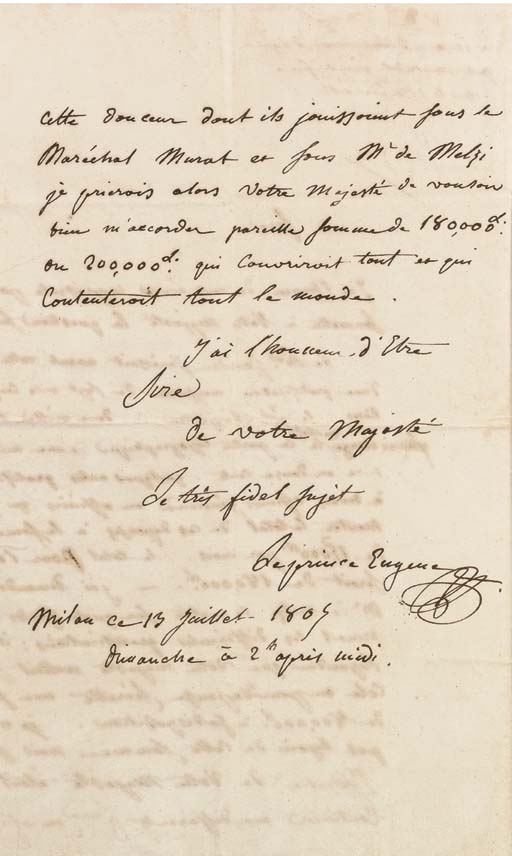 cette douceur dont ils jouissoient sous le
Maréchal Murat et sous Mr de Melzi
je prierois alors Votre Majesté de vouloir
bien m'accorder pareille somme de 180,000
ou 200,000 qui Couvriroit tout et qui
Contenteroit tout le monde.
J'ai l'honneur d'Etre
Sire
de votre Majesté
Le très fidel sujet
Le prince Eugene
Milan ce 13 Juillet 1805
dimanche à 2h après midi.